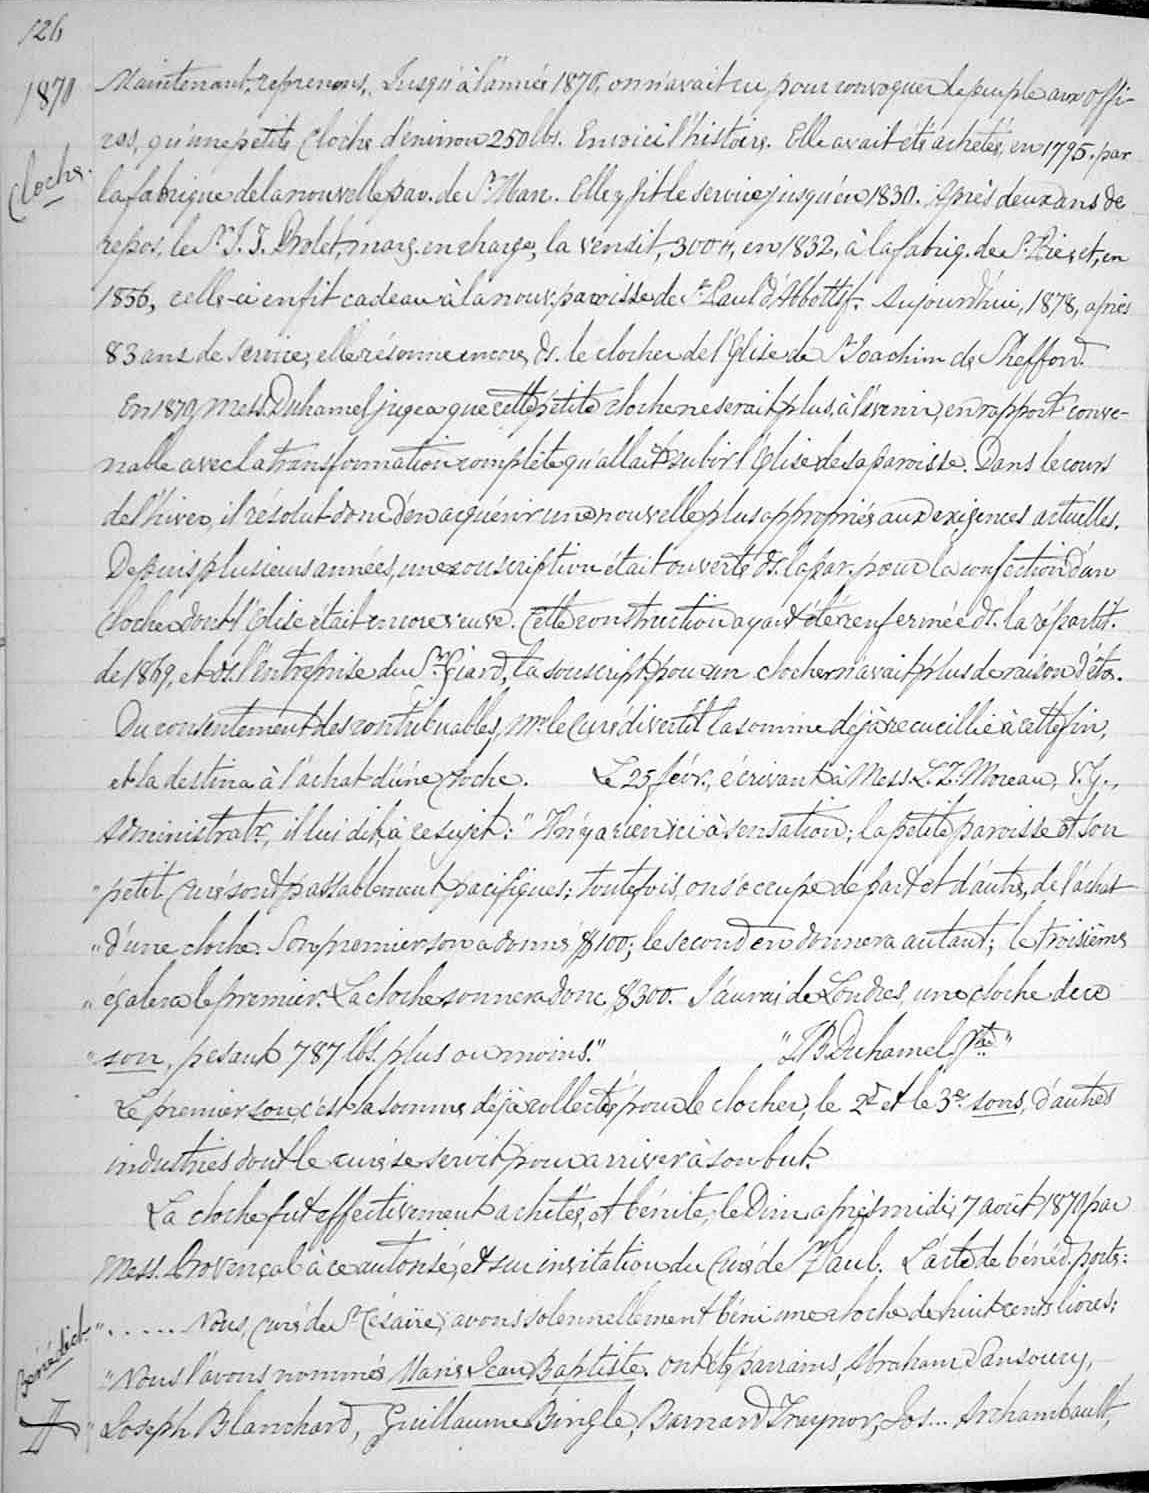 126
1870
Maintenant, reprenons, Jusqu'à l'année 1870, on n'avait eu, pour convoquer le peuple aux offi-
ces, qu'une petite Cloche d'environ 250 lbs. En voici l'histoire. Elle avait été achetée, en 1795, par
Cloche.
la fabrique de la nouvelle par. de St. Marc. Elle y fit le service jusqu'en 1830. Après deux ans de
repos, le Sr. J. T. Drolet, marg. en charge, la vendit, 300 #, en 1832, à la fabriq. de St. Pie, et, en
1856, celle-ci en fit cadeau à la nouv. paroisse de St. Paul d'Abbottsf. Aujourd'hui, 1878, après
83 ans de service, elle résonne encore, ds. le clocher de l'Eglise de St. Joachim de Shefford.
En 1870, Mess. Duhamel jugea que cette petite cloche ne serait plus, à l'avenir, en rapport conve-
nable avec la transformation complète qu'allait subir l'Eglise de sa paroisse. Dans le cours
de l'hiver, il résolut donc d'en acquérir une nouvelle plus appropriée aux exigences actuelles.
Depuis plusieurs années, une souscription était ouverte ds. la par. pour la confection d'un
clocher dont l'Eglise était encore veuve. Cette construction ayant été renfermée ds. la répartit.
de 1869, et ds. l'entreprise du Sr. Giard, la souscript. pour un clocher n'avait plus de raison d'être.
Du consentement des contribuables, Mr. le Curé divertit la somme déjà recueillie à cette fin,
et la destina à l'achat d'une cloche. Le 25 févr., écrivant à Mess. L. Z. Moreau, V. G.,
Administratr., il lui dit, à ce sujet: "Il n'y a rien ici à sensation; la petite paroisse et son
" petit Curé sont passablement pacifiques; toutefois, on s'occupe de part et d'autre, de l'achat
" d'une cloche. Son premier son a donné $100; le second en donnera autant; le troisième
" égalera le premier. La cloche sonnera donc $300. J'aurai de Londres, une cloche de ce
" son, pesant 787 lbs. plus ou moins." "J. B. Duhamel Ptre."
Le premier son, c'est la somme déjà collectée, pour le clocher, le 2d et le 3e. sons, d'autres
industries dont le curé se servit pour arriver à son but.
La cloche fut effectivement achetée, et bénite, le Dim. après midi, 7 août 1870 par
Mess. Provençal à ce autorisé, et sur invitation du Curé de St. Paul. L'acte de bénéd. porte:
". . . . . Nous, Curé de St. Césaire, avons solennellement béni une cloche de huit cents livres;
Bénédict.
"Nous l'avons nommée Marie, Jean Baptiste. ont été parrains, Abraham Sansoucy,
" Joseph Blanchard, Guillaume Bingle, Barnard Traynor, Jos... Archambault,